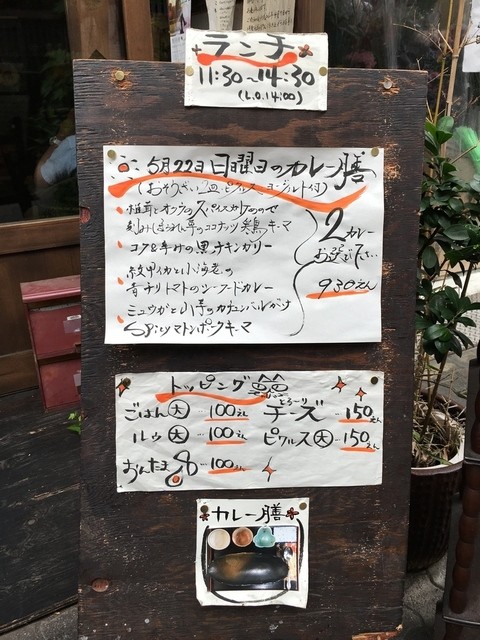 ランチ
11:30~14:30
(L.O.14:00)
5月22日 日曜日のカレー膳
(おそうざい2皿、ピクルス、ヨーグルト付)
椎茸とオクラのスパイスカツのせ
ココナッツ鶏キーマ
コク&辛けの黒チキンカリー
紋甲イカと小海老の
青チリトマトのシーフードカレー
ミュウガと小芋のカチュンバルがけ
Spicyマトンポークキーマ
2カレー
お選び下さい
930えん
トッピング
ごはん大 … 100えん
ルゥ大 … 100えん
おんたま … 100えん
とろ〜り
チーズ … 150えん
ピクルス大 … 150えん
カレー膳